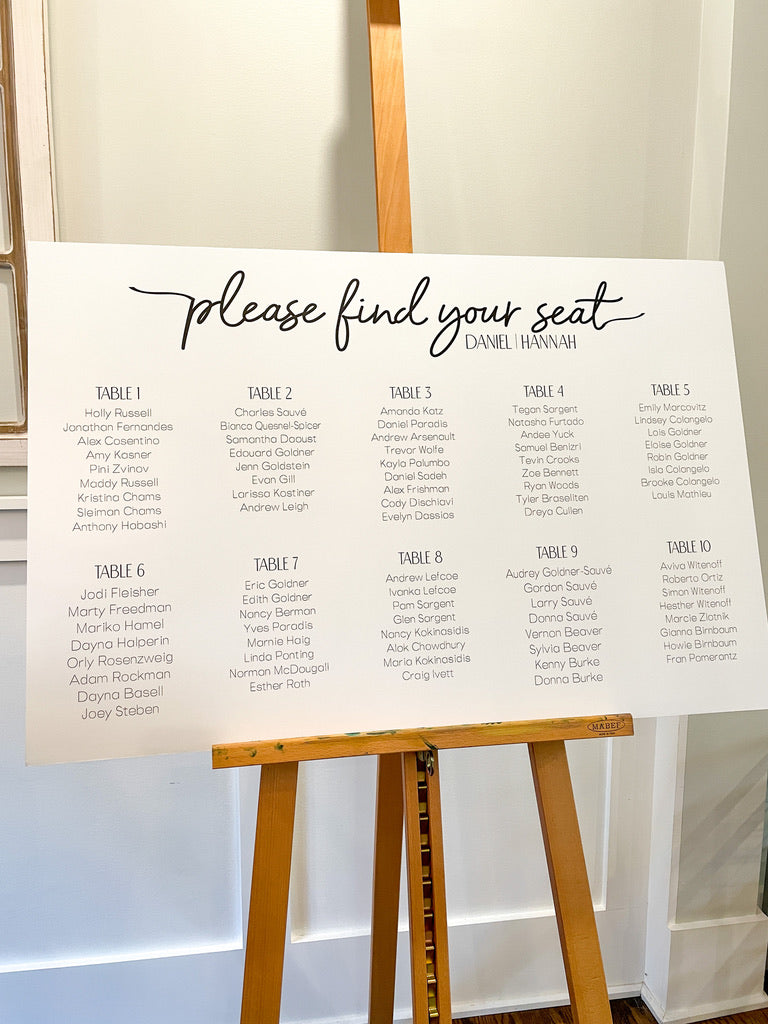 please find your seat
DANIEL | HANNAH
TABLE 1
Holly Russell
Jonathan Fernandes
Alex Cosentino
Amy Kasner
Pini Zvinov
Maddy Russell
Kristina Chams
Sleiman Chams
Anthony Hobashi
TABLE 2
Charles Sauvé
Bianca Quesnel-Spicer
Samantha Daoust
Edouard Goldner
Jenn Goldstein
Evan Gill
Larissa Kostiner
Andrew Leigh
TABLE 3
Amanda Katz
Daniel Paradis
Andrew Arsenault
Trevor Wolfe
Kayla Palumbo
Daniel Sadeh
Alex Frishman
Cody Dischiavi
Evelyn Dassios
TABLE 4
Tegan Sargent
Natasha Furtado
Andee Yuck
Samuel Benizri
Tevin Crooks
Zoe Bennett
Ryan Woods
Tyler Braseliten
Dreya Cullen
TABLE 5
Emily Marcovitz
Lindsey Colangelo
Lois Goldner
Eloise Goldner
Robin Goldner
Isla Colangelo
Brooke Colangelo
Louis Mathieu
TABLE 6
Jodi Fleisher
Marty Freedman
Mariko Hamel
Dayna Halperin
Orly Rosenzweig
Adam Rockman
Dayna Basell
Joey Steben
TABLE 7
Eric Goldner
Edith Goldner
Nancy Berman
Yves Paradis
Marnie Haig
Linda Ponting
Norman McDougall
Esther Roth
TABLE 8
Andrew Lefcoe
Ivanka Lefcoe
Pam Sargent
Glen Sargent
Nancy Kokinasidis
Alok Chowdhury
Maria Kokinasidis
Craig Ivett
TABLE 9
Audrey Goldner-Sauvé
Gordon Sauvé
Larry Sauvé
Donna Sauvé
Vernon Beaver
Sylvia Beaver
Kenny Burke
Donna Burke
TABLE 10
Aviva Witenoff
Roberto Ortiz
Simon Witenoff
Hesther Witenoff
Marcie Zlotnik
Gianna Birnbaum
Howie Birnbaum
Fran Pomerantz
MABEF